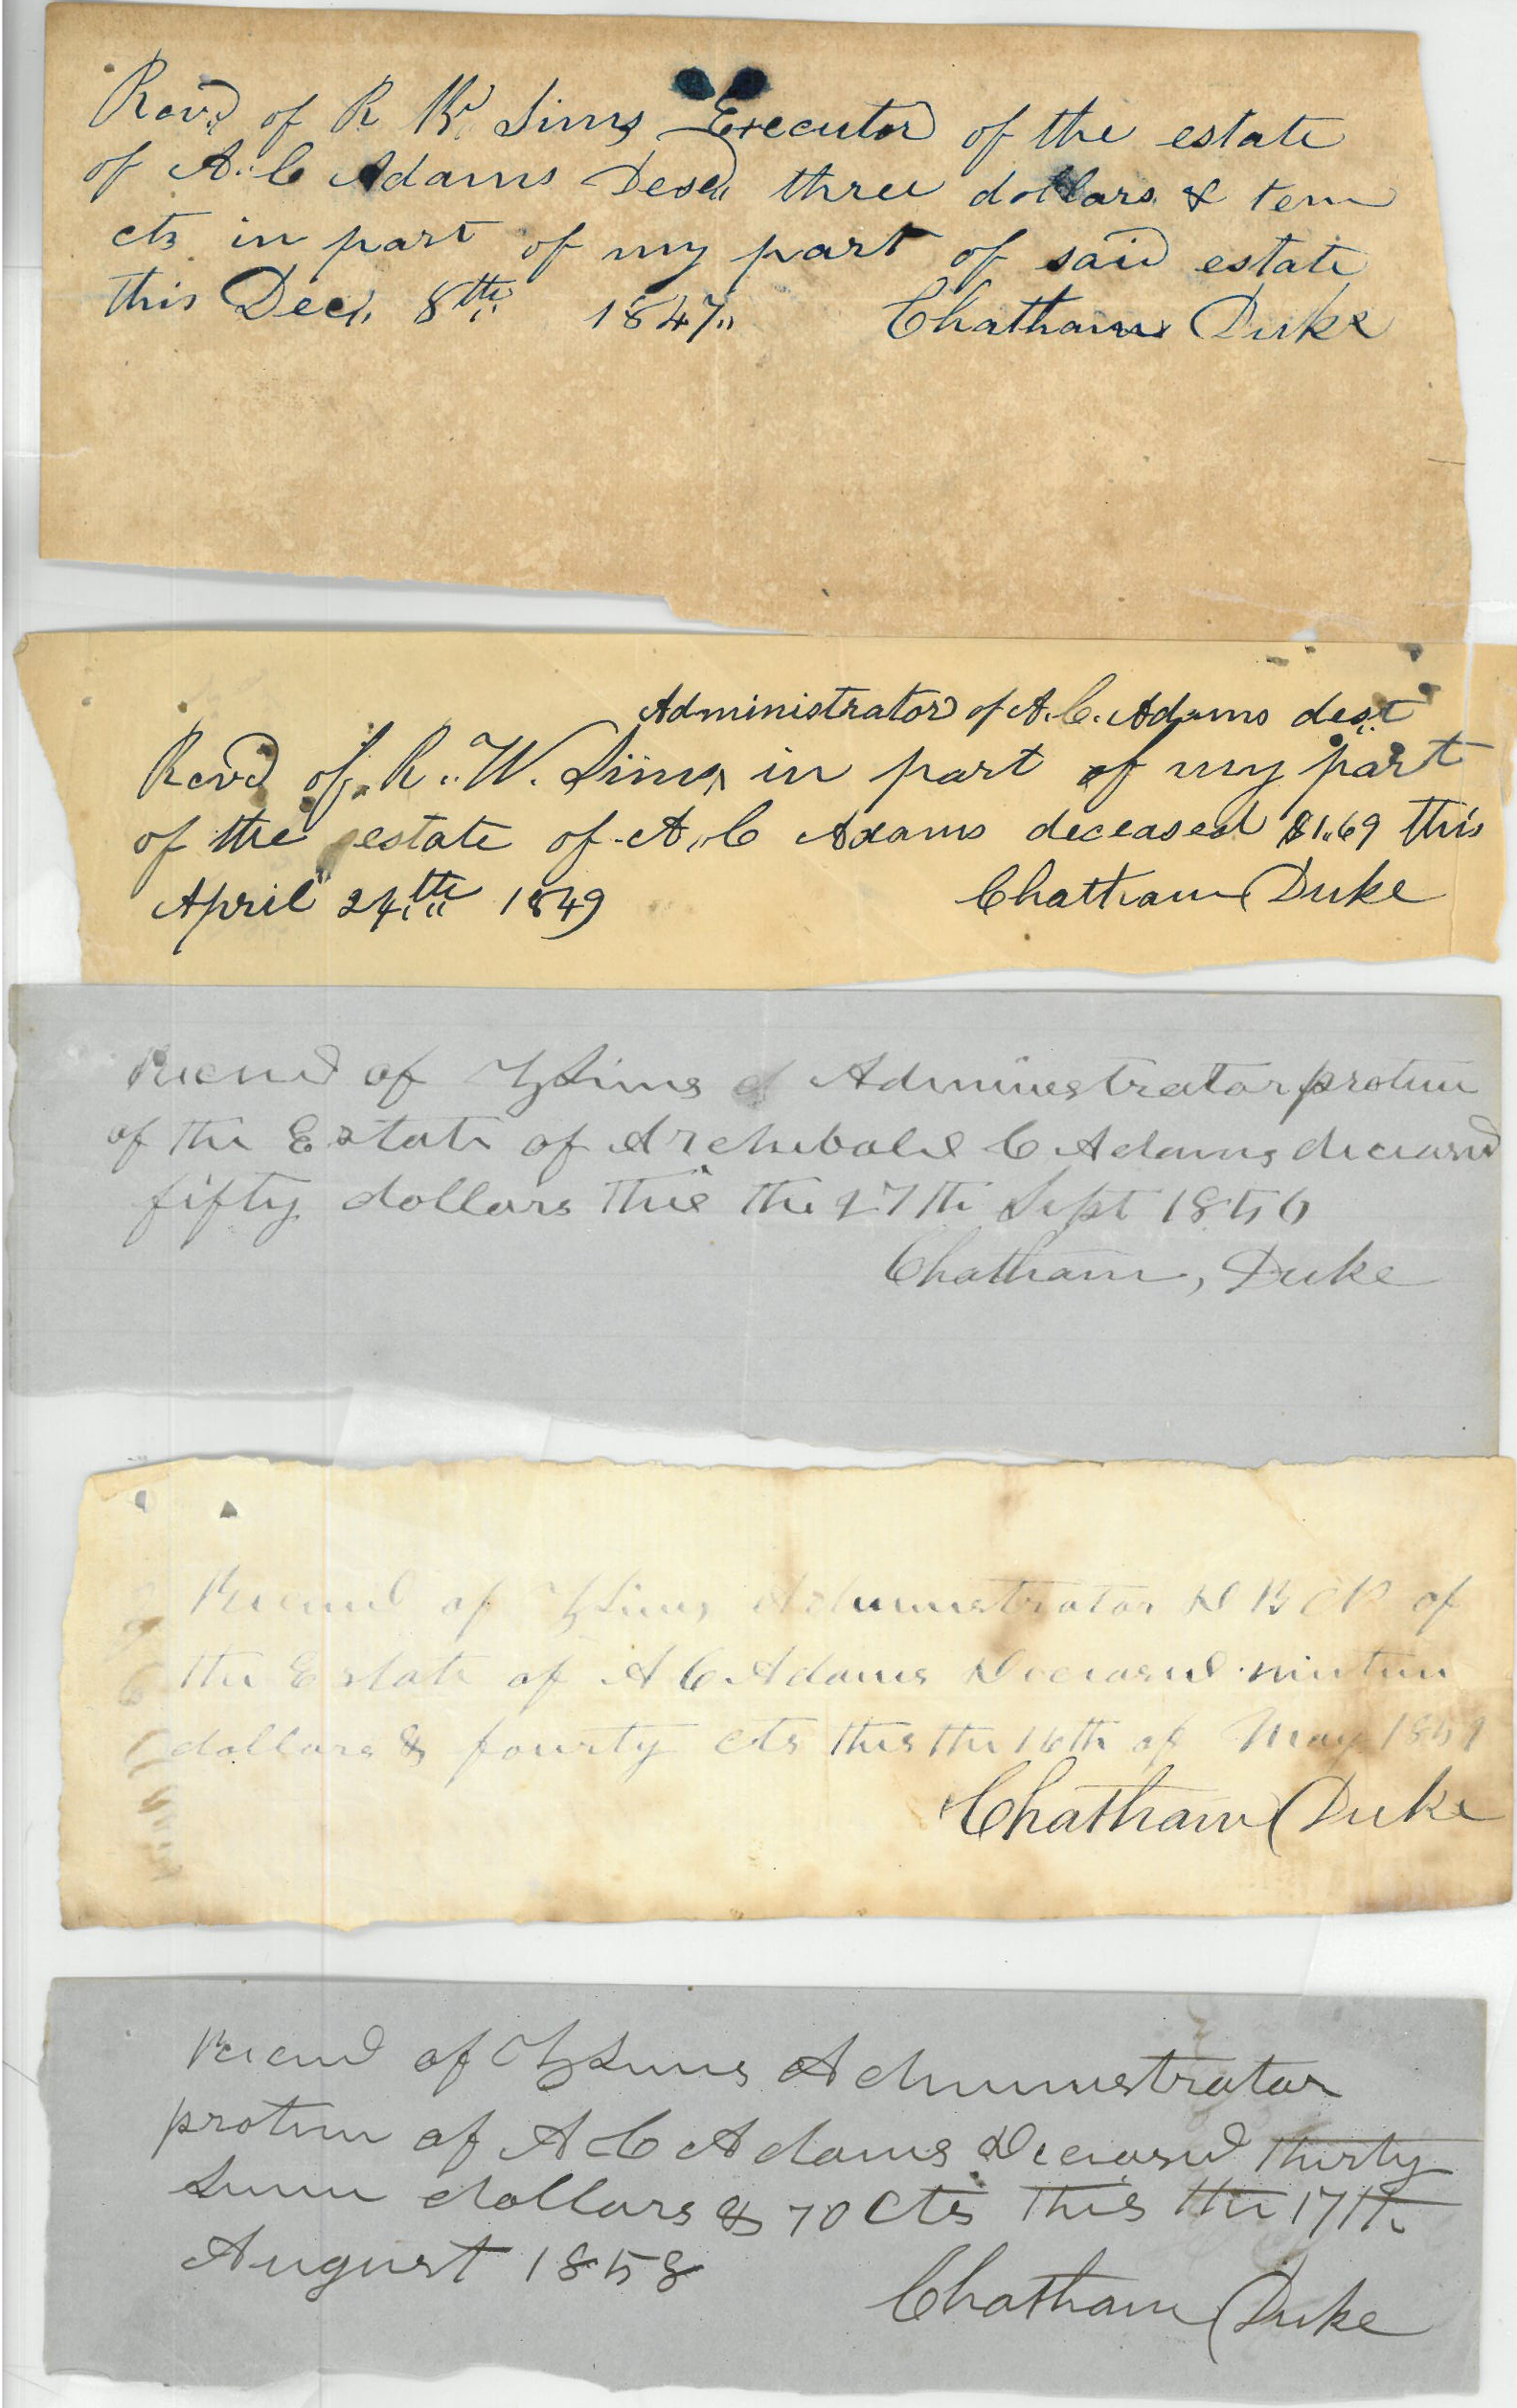 Recvd of R W Sims Executor of the estate
of A. C Adams Desd three dollars & ten
cts in part of my part of said estate
this Dec 8th 1847 Chatham Duke
Administrator of A. C. Adams dest
Recvd of R. W. Sims in part of my part
of the estate of A, C Adams deceased $1.69 this
April 24th 1849 Chatham Duke
Receivd of Sims Administrator protem
of the Estate of Archibald C Adams deceasd
fifty dollars this the 27th Sept 1856
Chatham, Duke
Receivd of Sims Administrator D B of
the Estate of A C Adams Deceasd ninteen
dollars & fourty cts this the 16th of May 1859
Chatham Duke
Receivd of Sims Administrator
protem of A C Adams Deceasd thirty
dollars & 70 Cts this the 17th
August 1858 Chatham Duke